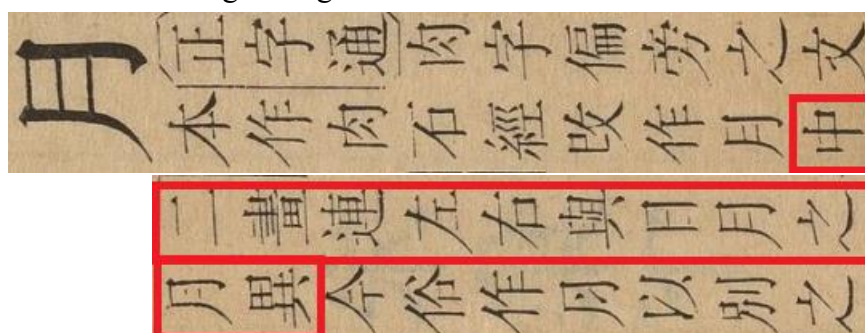 月【正字通】肉字偏旁之文
本作肉石經改作月中
二畫連左右與日月之
月異今俗作⺼以別之